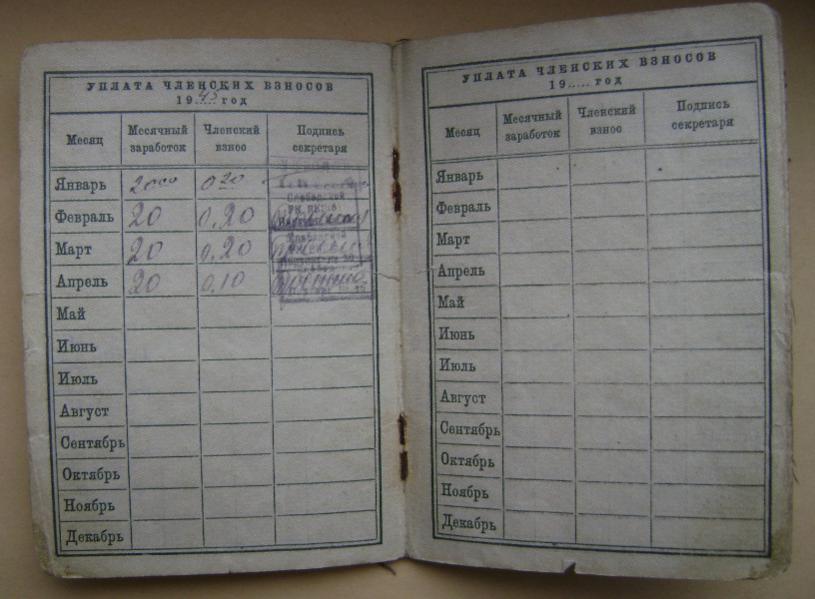 УПЛАТА ЧЛЕНСКИХ ВЗНОСОВ
1945 год
Месяц Месячный заработок Членский взнос Подпись секретаря
Январь 20 00 0 20
Февраль 20 0,20
Март 20 0,20
Апрель 20 0,10
Май
Июнь
Июль
Август
Сентябрь
Октябрь
Ноябрь
Декабрь
УПЛАТА ЧЛЕНСКИХ ВЗНОСОВ
19..... год
Месяц Месячный заработок Членский взнос Подпись секретаря
Январь
Февраль
Март
Апрель
Май
Июнь
Июль
Август
Сентябрь
Октябрь
Ноябрь
Декабрь